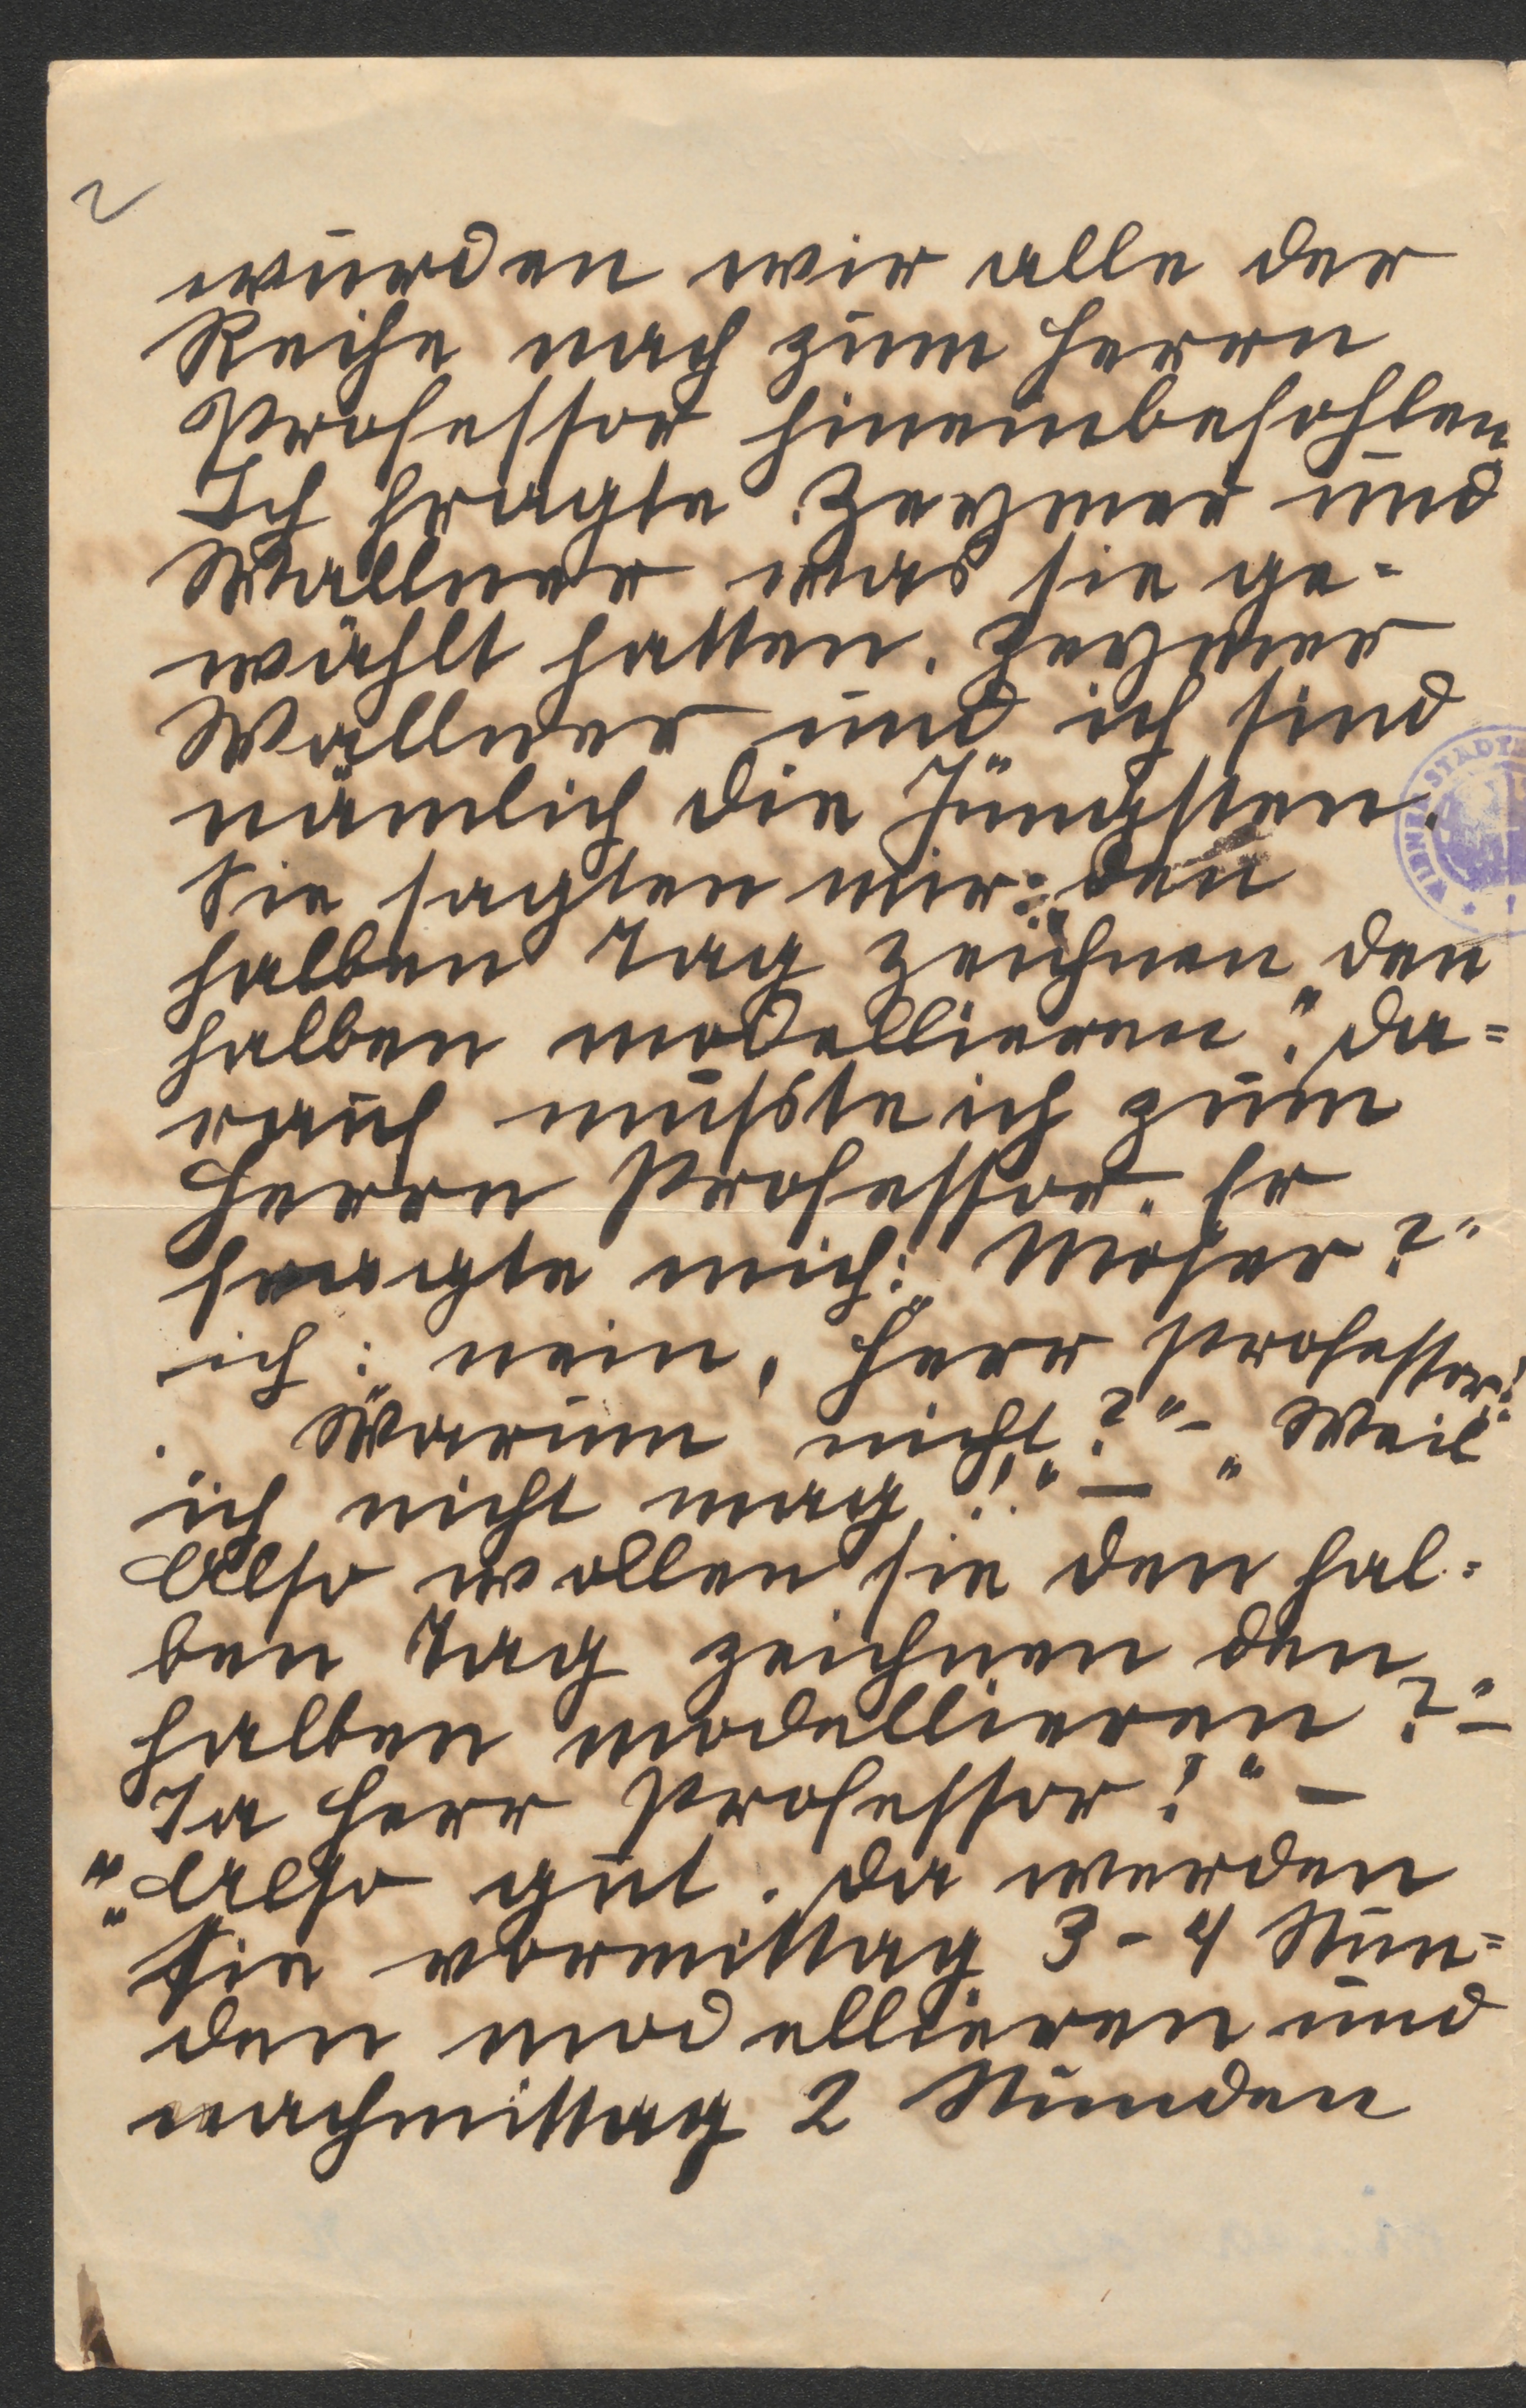 2
wurden wir alle der
Reihe nach zum Herrn
Professor hineinbefohlen.
Ich fragte Zeymer und
Wallner was sie ge=
wählt hatten. Zeymer
Wallner und ich sind
nämlich die Jüngsten.
Sie sagten mir: „den
halben Tag zeichnen den
halben modellieren“. Da=
rauf mußste ich zum
Herrn Professor. Er
fragte mich: „Moser?“
ich: nein, Herr Professor!
„Warum nicht?“ – „Weil
ich nicht mag!“ –
Also wollen sie den hal=
ben Tag zeichnen den
halben modellieren?“ –
Ja Herr Professor!“ –
„Also gut. Da werden
Sie vormittag 3–4 Stun=
den modellieren und
nachmittag 2 Stunden